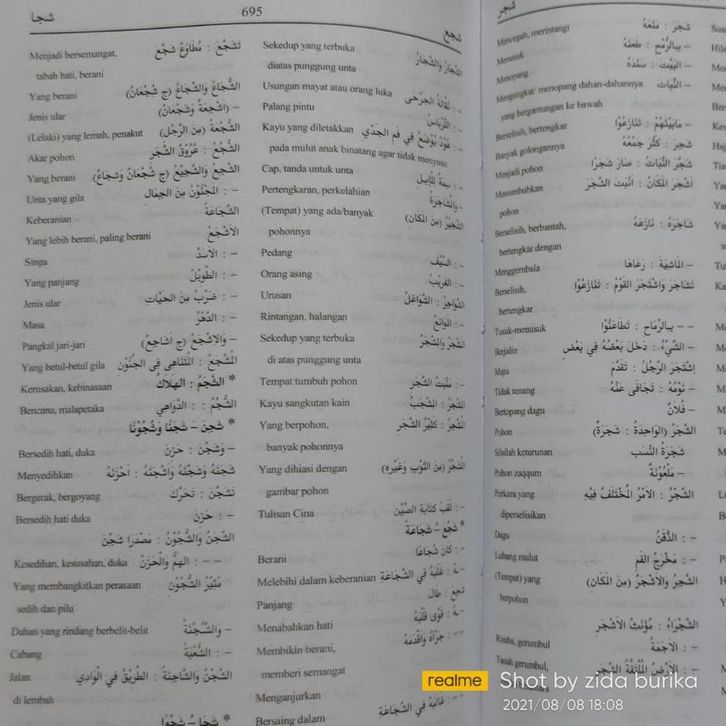 شجر
شَجَرَ : مَنَعَهُ Mencegah, merintangi
– بِالرُّمْحِ : طَعَنَهُ Menusuk
– الْبَيْتَ : سَنَدَهُ Menopang
– النَّبَاتَ Mengangkat/ menopang dahan-dahannya
yang bergantungan ke bawah
– مَابَيْنَهُمْ : تَنَازَعُوْا Berselisih, bertengkar
شَجَرَ : كَثُرَ جَمْعُهُ Banyak golongannya
شَجَّرَ النَّبَاتُ : صَارَ شَجَرًا Menjadi pohon
اَشْجَرَ الْمَكَانُ : اَنْبَتَ الشَّجَرَ Menumbuhkan
pohon
شَاجَرَهُ : نَازَعَهُ Berselisih, berbantah,
bertengkar dengan
– الْمَاشِيَةَ : رَعَاهَا Menggembala
تَشَاجَرَ وَاشْتَجَرَ الْقَوْمُ : تَنَازَعُوْا Berselisih,
bertengkar
– – بِالرِّمَاحِ : تَطَاعَنُوْا Tusuk-menusuk
– الشَّيْءُ : دَخَلَ بَعْضُهُ فِي بَعْضٍ Berjalin
اِشْتَجَرَ الرَّجُلُ : تَقَدَّمَ Maju
– نَوْمُهُ : تَجَافَى عَنْهُ Tidak tenang
– فُلَانٌ Bertopang dagu
الشَّجَرُ (الْوَاحِدَةُ : شَجَرَةٌ) Pohon
شَجَرَةُ النَّسَبِ Silsilah keturunan
– مَلْعُوْنَةٌ Pohon zaqqum
الشَّجْرُ : الْاَمْرُ الْمُخْتَلَفُ فِيْهِ Perkara yang
diperselisihkan
– : الذَّقَنُ Dagu
– : مَخْرَجُ الْفَمِ Lubang mulut
الشَّجِرُ وَالْاَشْجَرُ (مِنَ الْمَكَانِ) (Tempat) yang
berpohon
الشَّجْرَاءُ : مُؤَنَّثُ الْاَشْجَرِ
– : الْاَجَمَةُ Rimba, gerumbul
– : الْاَرْضُ الْمُلْتَفَّةُ الشَّجَرِ Tanah gerumbul,
شجا 695 شجع
الشِّجَارُ وَالشَّجَارُ Sekedup yang terbuka
diatas punggung unta
– : نَقَالَةُ الْجَرْحَى Usungan mayat atau orang luka
– : التِّرْبَاسُ Palang pintu
– : عُوْدٌ يُوْضَعُ فِي فَمِ الْجَدْيِ Kayu yang diletakkan
pada mulut anak binatang agar tidak menyusu
– : سِمَةٌ لِلْاِبِلِ Cap, tanda untuk unta
– وَالْمُشَاجَرَةُ Pertengkaran, perkelahian
الشَّجِيْرُ (مِنَ الْمَكَانِ) (Tempat) yang ada/banyak
pohonnya
– : السَّيْفُ Pedang
– : الْغَرِيْبُ Orang asing
الشَّوَاجِرُ : الشَّوَاغِلُ Urusan
– : الْمَوَانِعُ Rintangan, halangan
الْمِشْجَرُ وَالْمَشْجَرُ Sekedup yang terbuka
di atas punggung unta
– : مَنْبَتُ الشَّجَرِ Tempat tumbuh pohon
الْمِشْجَرُ : الْمِشْجَبُ Kayu sangkutan kain
الْمُشْجِرُ : كَثِيْرُ الشَّجَرِ Yang berpohon,
banyak pohonnya
الْمُشَجَّرُ (مِنَ الثَّوْبِ وَغَيْرِهِ) Yang dihiasi dengan
gambar pohon
– : لَقَبُ كِتَابَةِ الصِّيْنِ Tulisan Cina
* شَجُعَ – شَجَاعَةً
– : كَانَ شُجَاعًا Berani
– هُ : غَلَبَهُ فِي الشَّجَاعَةِ Melebihi dalam keberanian
شَجِعَ : طَالَ Panjang
– هُ : قَوَّى قَلْبَهُ Menabahkan hati
– – : جَرَّأَهُ وَاَقْدَمَهُ Membikin berani,
memberi semangat
Menganjurkan
– : غَالَبَهُ فِي الشَّجَاعَةِ Bersaing dalam
تَشَجَّعَ : مُطَاوَعُ شَجَّعَ Menjadi bersemangat,
tabah hati, berani
الشُّجَاعُ وَالشِّجَاعُ (ج شُجْعَانٌ) Yang berani
– (اَشْجِعَةٌ وَشُجْعَانٌ) Jenis ular
الشُّجْعَةُ (مِنَ الرَّجُلِ) (Lelaki) yang lemah, penakut
الشُّجُعُ : عُرُوْقُ الشَّجَرِ Akar pohon
الشَّجِعُ وَالشَّجِيْعُ (ج شُجْعَانٌ وَشِجَاعٌ) Yang berani
– : الْمَجْنُوْنُ مِنَ الْجِمَالِ Unta yang gila
الشَّجَاعَةُ Keberanian
الْاَشْجَعُ Yang lebih berani, paling berani
– : الْاَسَدُ Singa
– : الطَّوِيْلُ Yang panjang
– : ضَرْبٌ مِنَ الْحَيَّاتِ Jenis ular
– : الدَّهْرُ Masa
– وَالْاِشْجَعُ (ج اَشَاجِعُ) Pangkal jari-jari
الْمُشْجَعُ : الْمُتَنَاهِى فِى الْجُنُوْنِ Yang betul-betul gila
* الشَّجَمُ : الْهَلَاكُ Kerusakan, kebinasaan
الشُّجُمُ : الدَّوَاهِي Bencana, malapetaka
* شَجَنَ – شَجَنًا وَشُجُوْنًا
– وَشَجُنَ : حَزِنَ Bersedih hati, duka
شَجَنَهُ وَشَجَّنَهُ وَاَشْجَنَهُ : اَحْزَنَهُ Menyedihkan
تَشَجَّنَ : تَحَرَّكَ Bergerak, bergoyang
– : حَزِنَ Bersedih hati duka
الشَّجَنُ وَالشُّجُوْنُ : مَصْدَرَا شَجَنَ
– – : الْهَمُّ وَالْحَزَنُ Kesedihan, kesusahan, duka
مُثِيْرُ الشُّجُوْنِ Yang membangkitkan perasaan
sedih dan pilu
– وَالشَّجْنَةُ Dahan yang rindang berbelit-belit
– : الشُّعْبَةُ Cabang
الشَّجْنُ وَالشَّاجِنَةُ : الطَّرِيْقُ فِي الْوَادِي Jalan
di lembah
* شَجَا – شَجْوًا
realme Shot by zida burika
2021/08/08 18:08